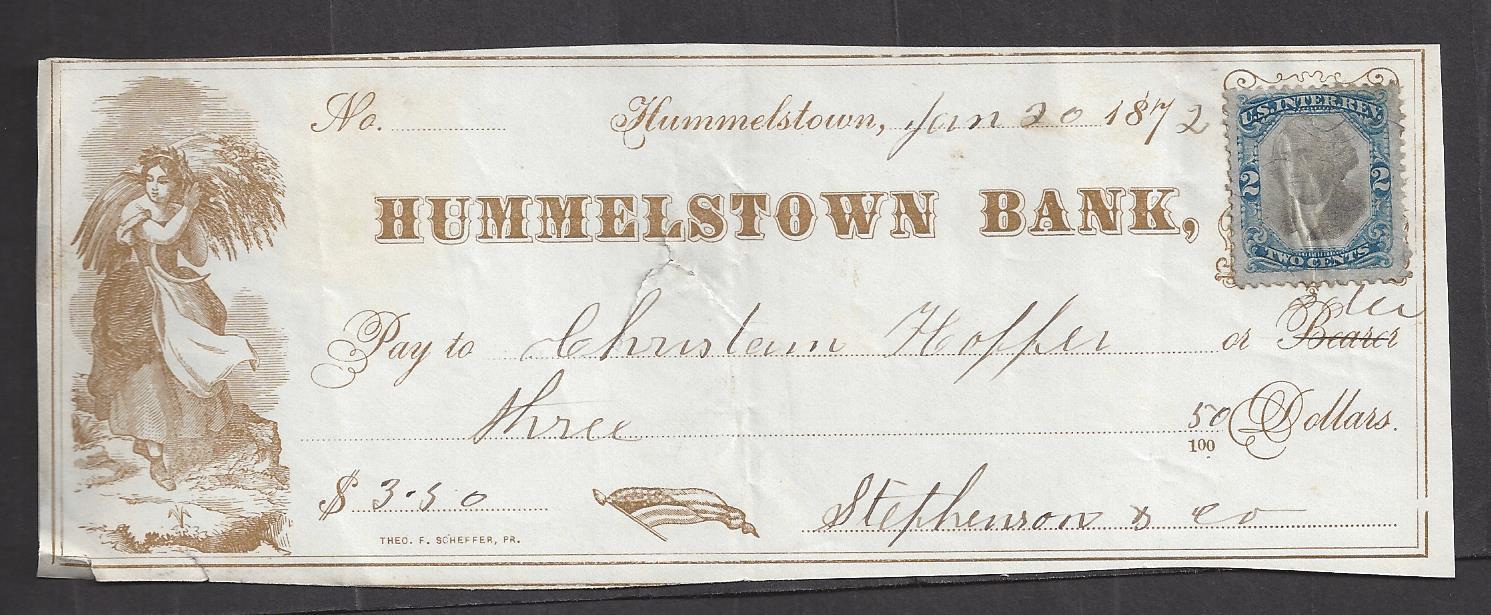 No. Hummelstown, Jan 20 1872
U.S. INTER. REV.
2 2
TWO CENTS
HUMMELSTOWN BANK,
Pay to Christain Hoffer or Bearer
three 50/100 Dollars.
$ 3.50 Stephenson & Co
THEO. F. SCHEFFER, PR.